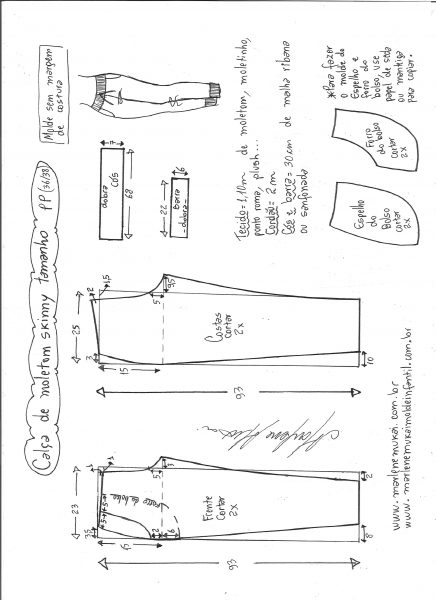 Calça de moletom skinny tamanho PP (36/38)
Molde sem margem
de costura
dobra
cós
7
68
barra
-dobra-
6
22
Tecido = 1,10m de moletom, moletinho,
ponto roma, plush...
Cordão = 2 m
Cós e barra = 30 cm de malha ribana
ou sanfonada
*Para fazer
o molde do
Espelho e
forro do
bolso, use
papel de seda
ou manteiga
para copiar.
Forro
do bolso
cortar
2x
Espelho
do
Bolso
cortar
2x
2
1,5
25
3
15
5
Costas
cortar
2x
10
93
23
3,5
15
5
3
2
6
Frente
Cortar
2x
2
8
93
www.marlenemukai.com.br
www.marlenemukaimoldeinfantil.com.br